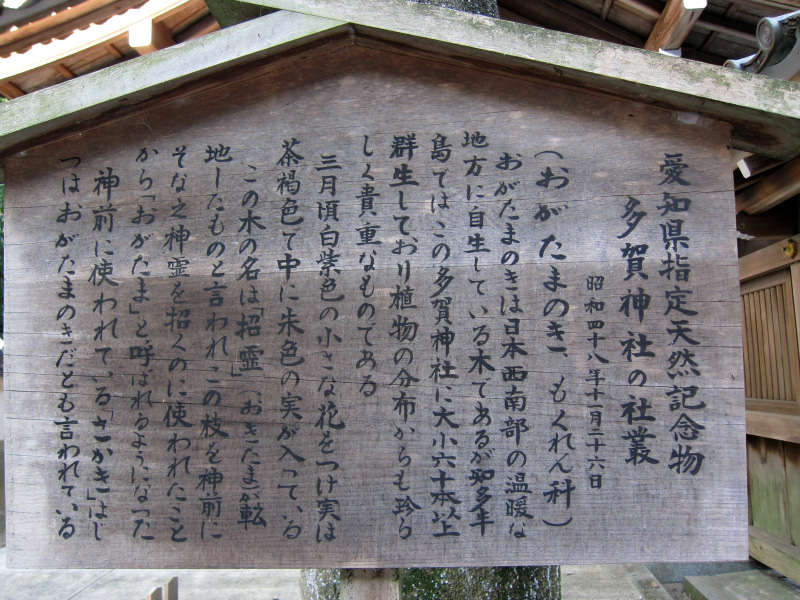 愛知県指定天然記念物
多賀神社の社叢
昭和四十八年十一月二十六日
(おがたまのき、もくれん科)
おがたまのきは日本西南部の温暖な
地方に自生している木であるが知多半
島ではこの多賀神社に大小六十本以上
群生しており植物の分布からも珍ら
しく貴重なものである
三月頃白紫色の小さな花をつけ実は
茶褐色で中に朱色の実が入っている
この木の名は「招霊」(おきたま)が転
地したものと言われこの枝を神前に
そなえ神霊を招くのに使われたこと
から「おがたま」と呼ばれるようになった
神前に使われている「さかき」はじ
つはおがたまのきだとも言われている